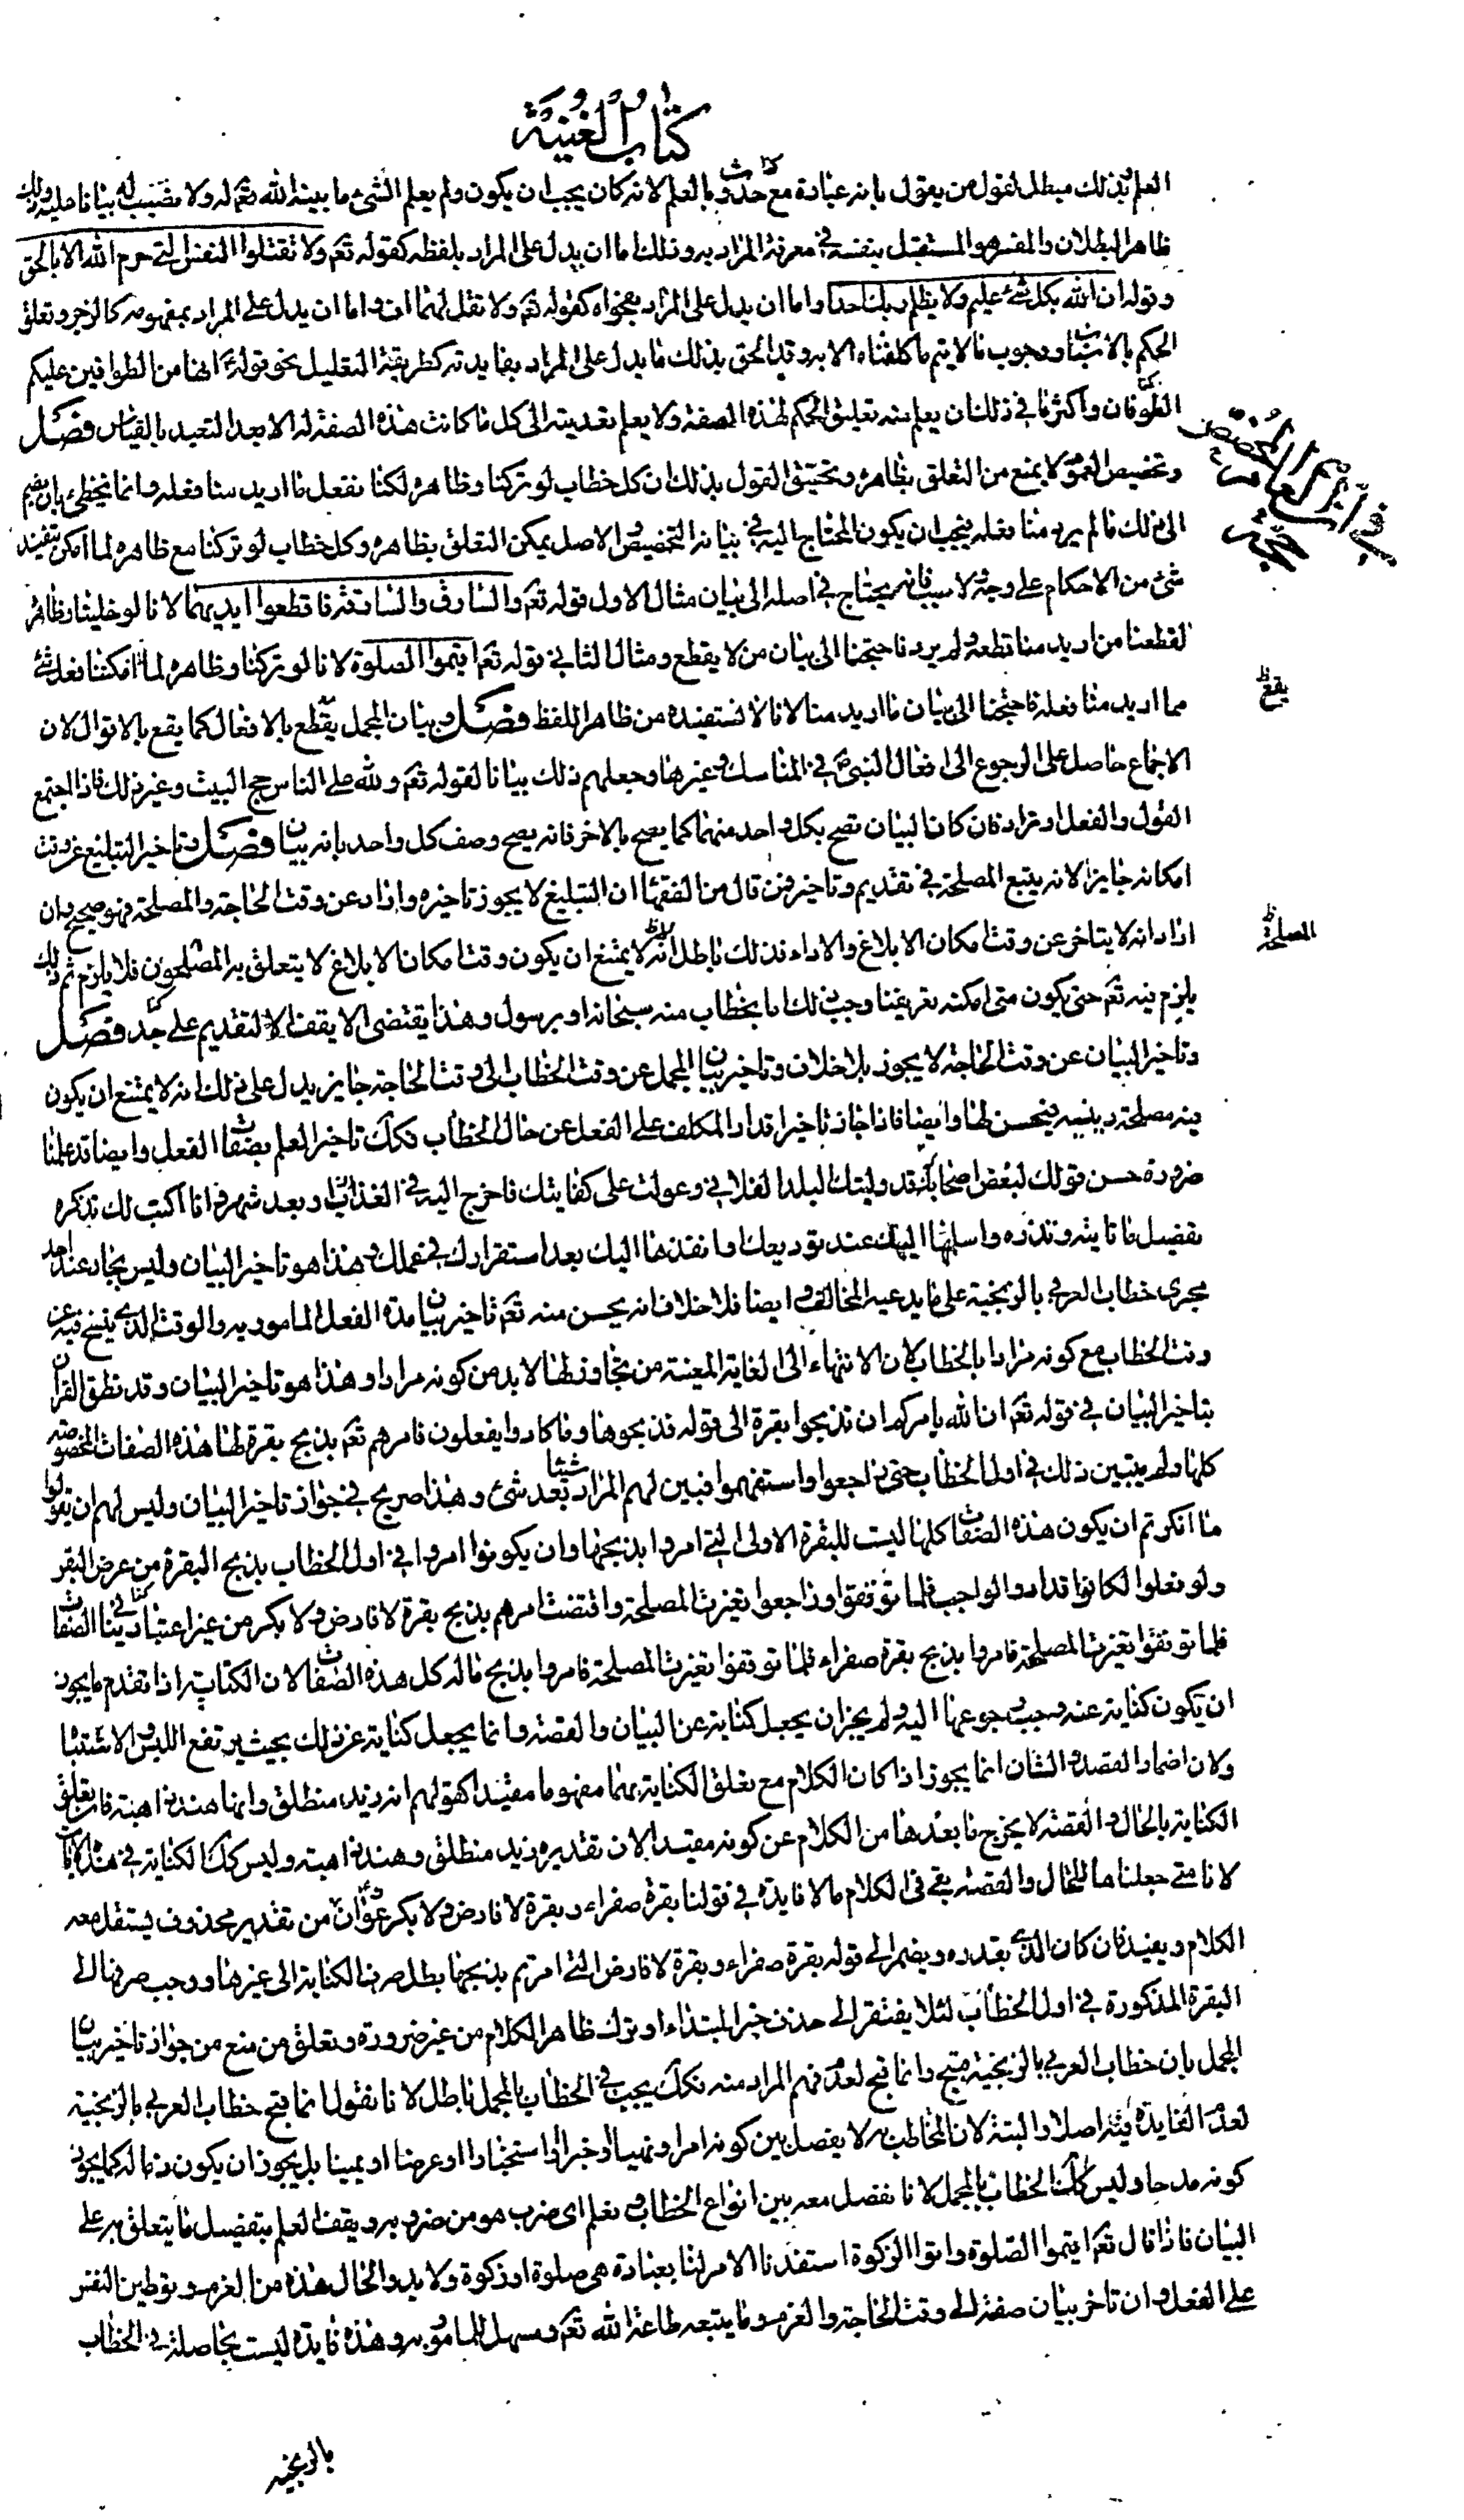 كتاب الغنية
العلم بذلك مبطل لقول من يقول بانه عبادة مع حدوث بالعلم لانه كان يجب ان يكون ولم يعلم الشئ ما بينه الله تعم له ولا نصب له بيانا عليه وذلك
ظاهر البطلان والمفسر هو المستقبل بنفسه في معرفة المراد به وذلك اما ان يدل على المراد بلفظه كقوله تعم ولا تقتلوا النفس التي حرم الله الا بالحق
وقوله ان الله بكل شئ عليم ولا يظلم ربك احدا واما ان يدل على المراد بفحواه كقوله تعم ولا تقل لهما اف واما ان يدل على المراد بمفهومه كالزجر وتعلق
الحكم بالاسباب ووجوب ما لا يتم ما كلفناه الا به وقد الحق بذلك ما يدل على المراد بفايدته كطريقة التعليل نحو قوله انها من الطوافين عليكم
الطوفان واكثر ما في ذلك ان يعلم منه تعليق الحكم لهذه الصفة ولا يعلم تعديته الى كل ما كانت هذه الصفة له الا بعد التعبد بالقياس فصل
وتخصيص العموم لا يمنع من التعلق بظاهره وتحقيق القول بذلك ان كل خطاب لو تركنا وظاهره لكنا نفعل ما اريد منا فعله وانما نخطئ بان نضم
الى ذلك ما لم يرد منا فعله فيجب ان يكون المحتاج اليه في بيانه التخصيص والاصل يمكن التعلق بظاهره وكل خطاب لو تركنا مع ظاهره لما امكن تنفيذ
شئ من الاحكام على وجه ولا سبب فانه يحتاج في اصله الى بيان مثال الاول قوله تعم والسارق والسارقة فاقطعوا ايديهما لانا لو خلينا وظاهره
لقطعنا من اريد منا قطعه ولم يرد فاحتجنا الى بيان من لا يقطع ومثال الثاني قوله تعم اقيموا الصلوة لانا لو تركنا وظاهره لما امكننا فعل شئ
مما اريد منا فعله فاحتجنا الى بيان ما اريد منا لانا لا نستفيده من ظاهر اللفظ فصل وبيان المجمل يقطع بالافعال كما يقع بالاقوال لان
الاجماع حاصل على الرجوع الى افعال النبي في المناسك وغيرها وجعلهم ذلك بيانا لقوله تعم ولله على الناس حج البيت وغير ذلك فاذا اجتمع
القول والفعل او ترادفا كان البيان تصح بكل واحد منهما كما يصح بالاخر فانه يصح وصف كل واحد بانه بيان فصل وتاخير التبليغ عن وقت
امكانه جايز لانه يتبع المصلحة في تقديم وتاخير فمن قال من الفقها ان التبليغ لا يجوز تاخيره واراد عن وقت الحاجة والمصلحة فهو صحيح وان
اراد انه لا يتاخر عن وقت امكان الابلاغ والاداء فذلك باطل لانه لا يمتنع ان يكون وقت امكان الابلاغ لا يتعلق به المصلحون فلا يلزم ثم ذلك
يلزم فيه تعم حتى يكون متى امكنه تعريفنا وجب ذلك بخطاب منه سبحانه او برسول وهذا يقتضي الا يقف التقديم على حد فصل
وتاخير البيان عن وقت الحاجة لا يجوز بلا خلاف وتاخير بيان المجمل عن وقت الخطاب الى وقت الحاجة جايز يدل على ذلك انه لا يمتنع ان يكون
فيه مصلحة دينية فيحسن لها وايضا فاذا جاز تاخير اقدار المكلف على الفعل عن حال الخطاب فكك تاخير العلم بصفات الفعل وايضا قد علمنا
ضرورة حسن قولك لبعض اصحابك قد وليتك البلد الفلاني وعولت على كفايتك فاخرج اليه في الغد او بعد شهر وانا اكتب لك تذكرة
بتفصيل ما تاتيه وتذره واسلمها اليك عند توديعك وانفذها اليك بعد استقرارك في عملك وهذا هو تاخير البيان وليس بجار عند احد
مجرى خطاب العربي بالزنجية على ما يدعيه المخالف وايضا فلا خلاف انه يحسن منه تعم تاخير بيان مدة الفعل المامور به والوقت الذي ينسخ فيه عن
وقت الخطاب مع كونه مرادا بالخطاب لان الانتهاء الى الغاية المعينة من تجاوزها لا بد من كونه مرادا وهذا هو تاخير البيان وقد نطق القران
بتاخير البيان في قوله تعم ان الله يامركم ان تذبحوا بقرة الى قوله فذبحوها وما كادوا يفعلون فامرهم تعم بذبح بقرة لها هذه الصفات المخصوصة
كلها ولم يتبين ذلك في اول الخطاب حتى راجعوا واستفهموا فبين لهم المراد شيئا بعد شئ وهذا صريح في جواز تاخير البيان وليس لهم ان يقولوا
ما انكرتم ان يكون هذه الصفات كلها ليست للبقرة الاولى التي امروا بذبحها وان يكونوا امروا في اول الخطاب بذبح البقرة من عرض البقر
ولو فعلوا لكانوا قد ادوا الواجب فلما توقفوا وراجعوا تغيرت المصلحة واقتضت امرهم بذبح بقرة لا فارض ولا بكر من غير اعتبار باقي الصفات
فلما توقفوا تغيرت المصلحة فامروا بذبح بقرة صفراء فلما توقفوا تغيرت المصلحة فامروا بذبح ما له كل هذه الصفات لان الكناية اذا تقدم ما يجوز
ان يكون كناية عنه وجب رجوعها اليه ولم يجز ان يجعل كناية عن البيان والقصة وانما يجعل كناية عن ذلك بحيث يرتفع اللبس والاشتباه
ولان اضمار القصة والشان انما يجوز اذا كان الكلام مع تعلق الكناية بهما مفهوما مفيدا كقولهم انه زيد منطلق وانها هند ذاهبة فان تعلق
الكناية بالحال والقصة لا يخرج ما بعدها من الكلام عن كونه مفيدا لان تقديره زيد منطلق وهند ذاهبة وليس كك الكناية في هذه الايات
لانا متى جعلناها للحال والقصة بقي في الكلام ما لا فايدة في قولنا بقرة صفراء وبقرة لا فارض ولا بكر عوان من تقدير محذوف ليستقل معه
الكلام ويفيد فان كان الذي يقدره ويضم الى قوله بقرة صفراء وبقرة لا فارض التي امرتم بذبحها بطل صرف الكناية الى غيرها ووجب صرفها الى
البقرة المذكورة في اول الخطاب لئلا يفتقر الى حذف خبر المبتداء او ترك ظاهر الكلام من غير ضرورة وتعلق من منع من جواز تاخير بيان
المجمل بان خطاب العربي بالزنجية قبيح وانما قبح لعدم فهم المراد منه فكك يجب في الخطاب بالمجمل باطل لانا نقول انما قبح خطاب العربي بالزنجية
لعدم الفايدة فيه اصلا والبتة لان المخاطب به لا يفصل بين كونه امرا ونهيا او خبرا او استخبارا او عرضا او يمينا بل يجوز ان يكون ذما له كما يجوز
كونه مدحا وليس كك الخطاب بالمجمل لانا نفصل معه بين انواع الخطاب ونعلم اي ضرب هو من ضروبه ويقف العلم بتفصيل ما يتعلق به على
البيان فاذا قال تعم اقيموا الصلوة واتوا الزكوة استفدنا الامر لنا بعبادة هي صلوة او زكوة ولا بد والحال هذه من العزم وتوطين النفس
على الفعل وان تاخر بيان صفته الى وقت الحاجة والعزم وما يتبعه طاعة الله تعم ومسهل للمامور به وهذه فايدة ليست بحاصلة في الخطاب
يقع
المصلحة
بالزنجية